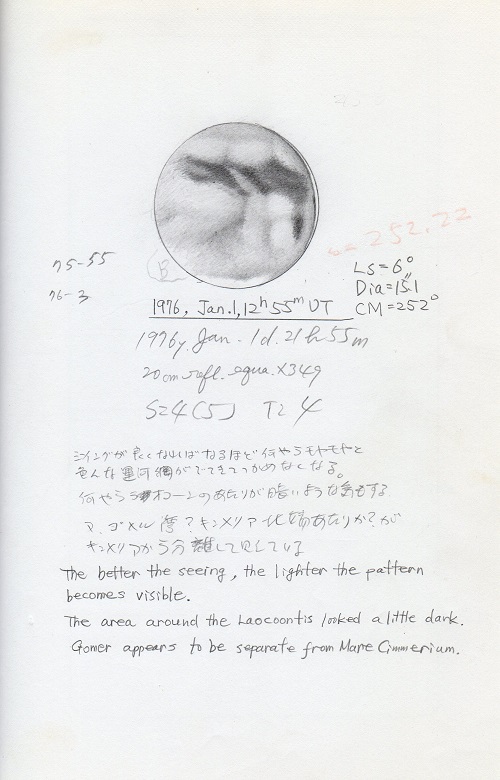 ω=252.22
75-55
76-3
B
Ls=6°
Dia=15.1"
CM=252°
1976, Jan.1, 12h 55m UT
1976y. Jan. 1d. 21h 55m
20cm refl. equa. ×349
S=4(5) T=4
シイングが良くなればなるほど何やらモヤモヤと
色んな運河網がでてきてつかめなくなる。
何やらラオコーンのあたりが暗いような気もする
マ、ゴメル 湾?キンメリア北端あたりか?が
キンメリアから分離して見えている
The better the seeing, the lighter the pattern
becomes visible.
The area around the Laocoontis looked a little dark.
Gomer appears to be separate from Mare Cimmerium.